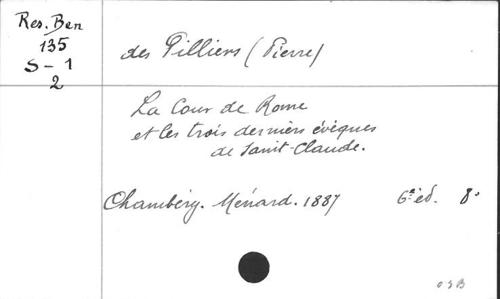 Res. Ben
135
S - 1
2
des Pilliers (Pierre)
La Cour de Rome
et les trois derniers évêques
de Saint-Claude.
Chambéry. Ménard. 1887 6e éd. 8°